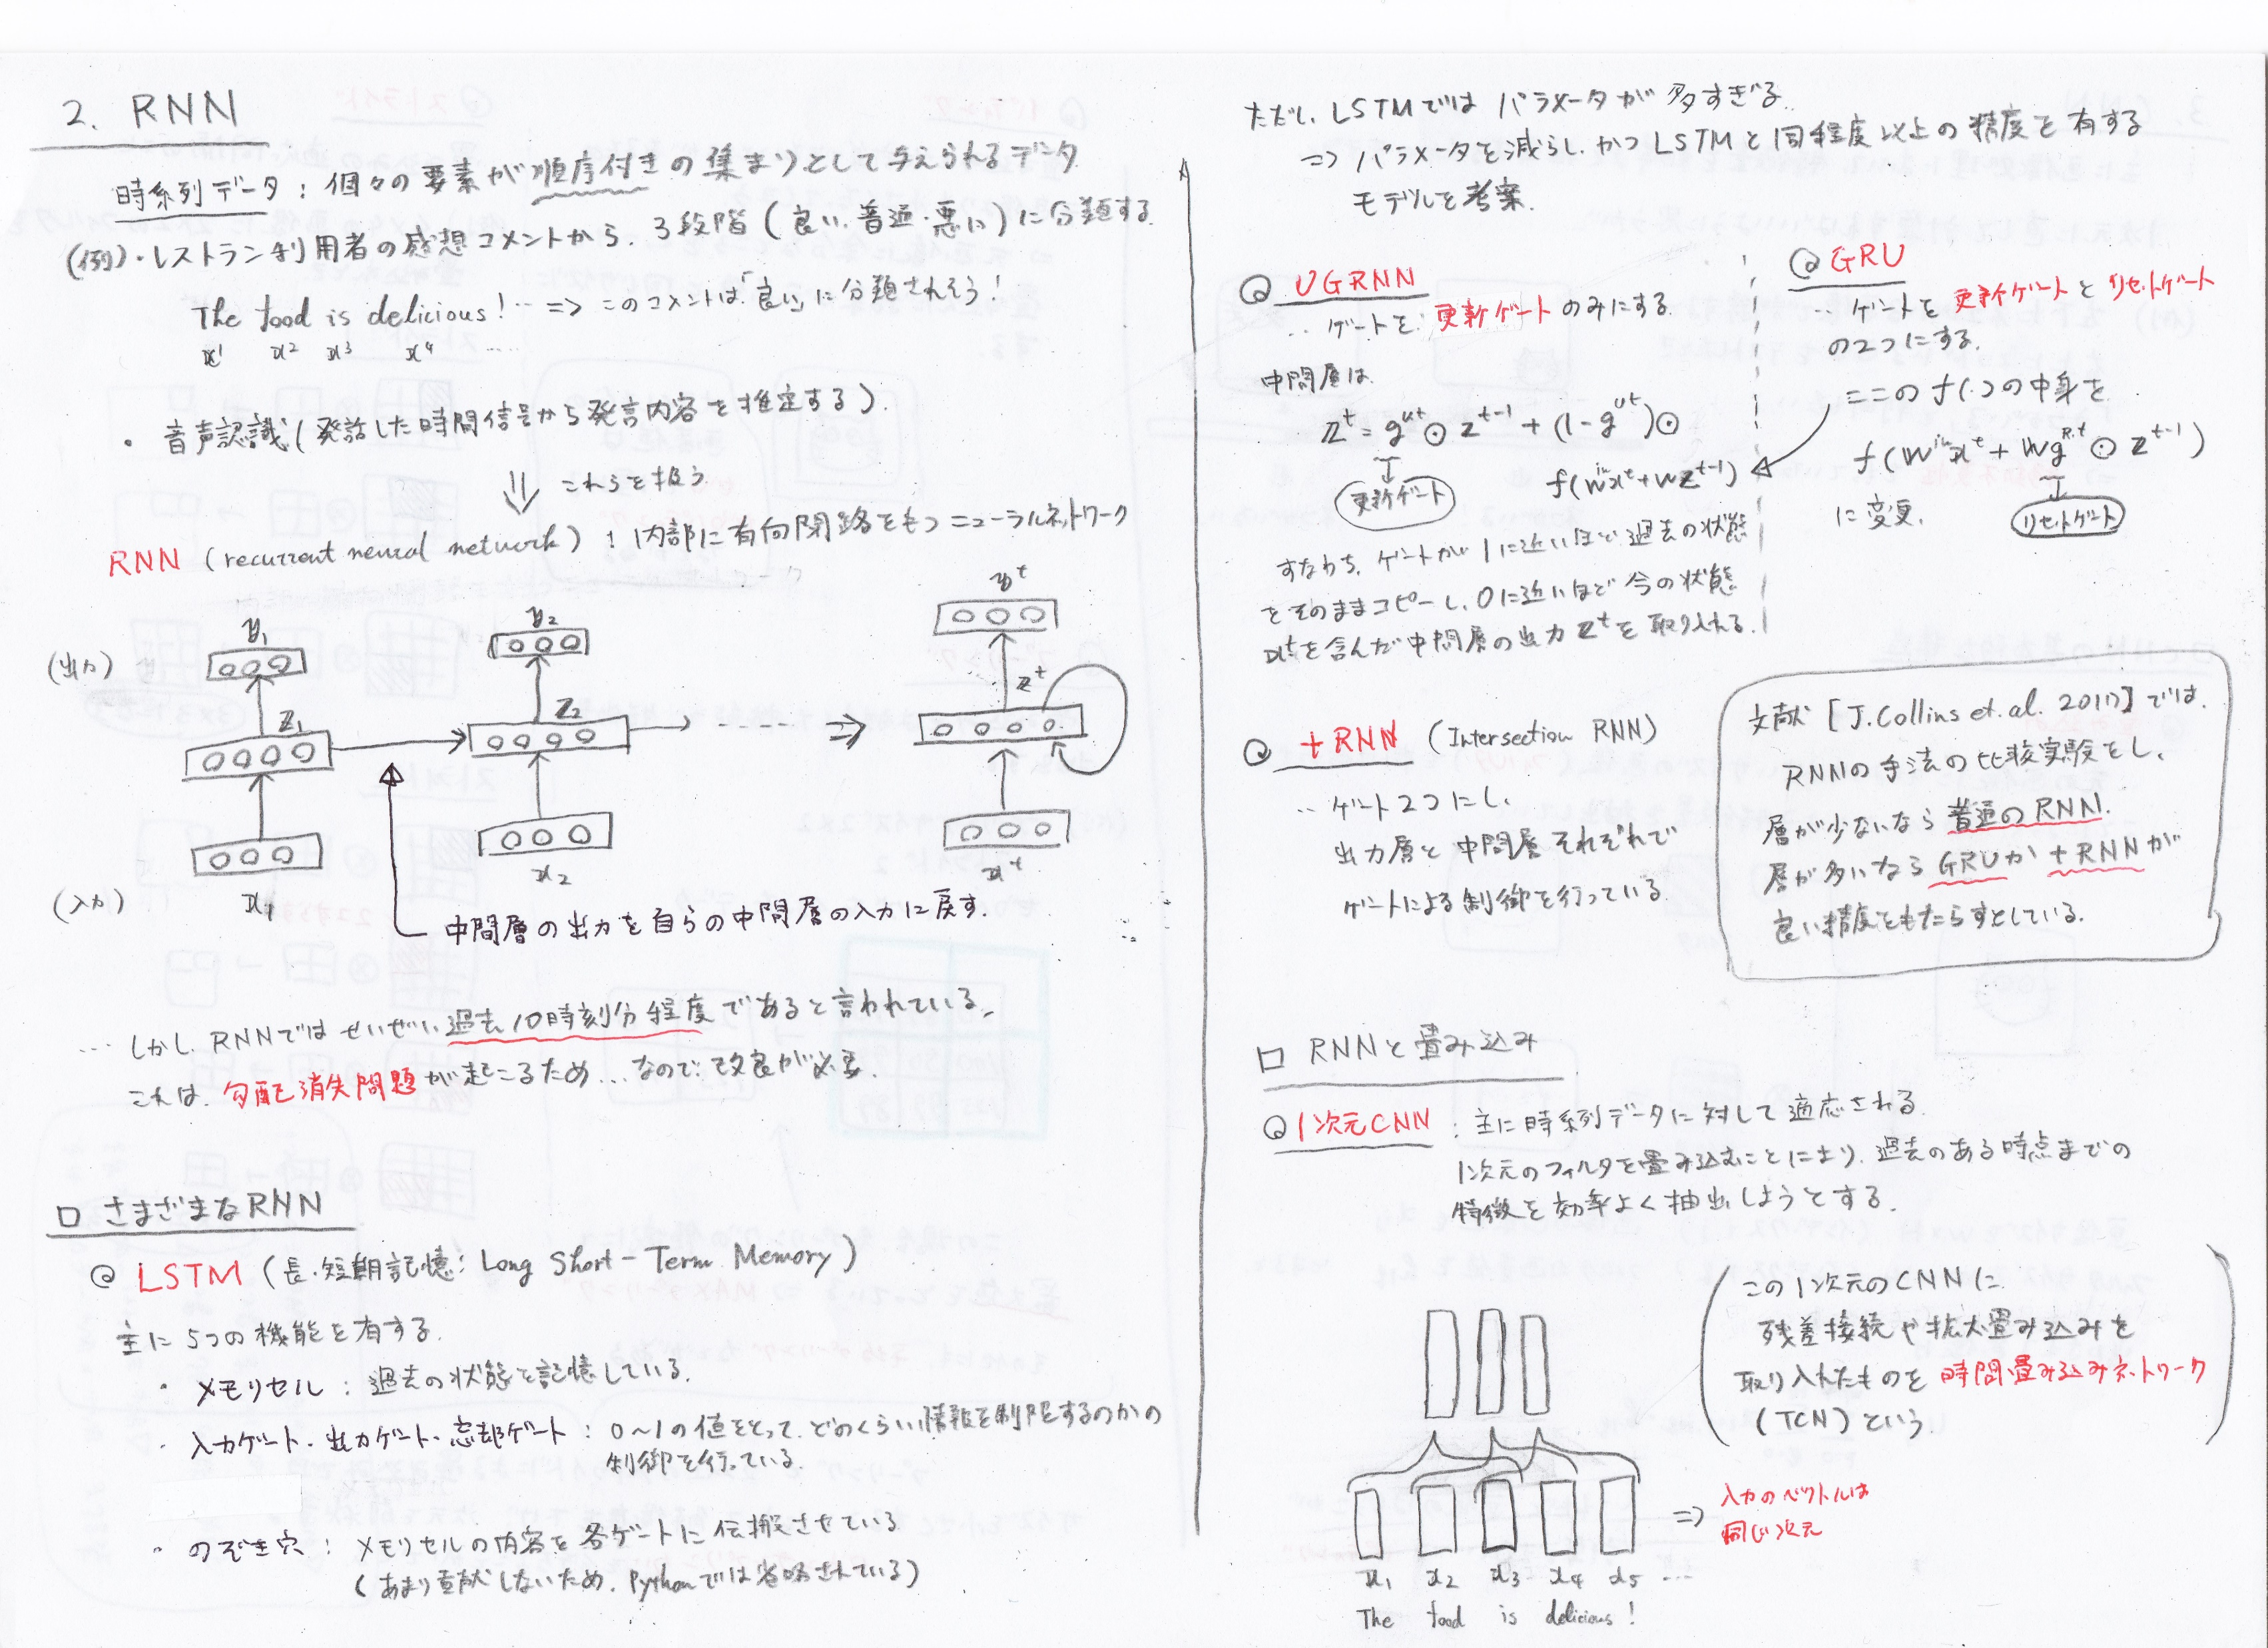 2. RNN
時系列データ：個々の要素が順序付きの集まりとして与えられるデータ
(例)・レストラン利用者の感想コメントから、3段階(良い・普通・悪い)に分類する
The food is delicious! … => このコメントは「良い」に分類されそう!
x¹ x² x³ x⁴ ……
・音声認識(発話した時間信号から発言内容を推定する)
⇓ これらを扱う
RNN (recurrent neural network)：内部に有向閉路をもつニューラルネットワーク
(出力) y₁ y₂ yᵗ
z₁ z₂ ---- ⇒ zᵗ
(入力) x₁ x₂ xᵗ
中間層の出力を自らの中間層の入力に戻す.
… しかし、RNNではせいぜい過去10時刻分程度であると言われている.
これは、勾配消失問題が起こるため…なので改良が必要.
□ さまざまなRNN
◎ LSTM (長・短期記憶：Long Short-Term Memory)
主に5つの機能を有する.
・メモリセル：過去の状態を記憶している.
・入力ゲート・出力ゲート・忘却ゲート：0～1の値をとって、どのくらい情報を制限するのかの
制御を行っている.
・のぞき穴：メモリセルの内容を各ゲートに伝搬させている
(あまり貢献しないため、Pythonでは省略されている)
ただし、LSTMではパラメータが多すぎる.
⇒ パラメータを減らし、かつLSTMと同程度以上の精度を有する
モデルを考案.
◎ UGRNN
… ゲートを更新ゲートのみにする.
中間層は
zᵗ = gᵘᵗ ⊙ zᵗ⁻¹ + (1-gᵘᵗ)⊙
f(Wⁱⁿxᵗ+Wzᵗ⁻¹)
更新ゲート
すなわち、ゲートが1に近いほど過去の状態
をそのままコピーし、0に近いほど今の状態
xᵗを含んだ中間層の出力zᵗを取り入れる.
◎ GRU
… ゲートを更新ゲートとリセットゲート
の2つにする.
ここのf(・)の中身を
f(Wⁱⁿxᵗ + Wgᴿ·ᵗ ⊙ zᵗ⁻¹)
リセットゲート
に変更.
◎ +RNN (Intersection RNN)
… ゲート2つにし、
出力層と中間層それぞれで
ゲートによる制御を行っている.
文献[J.Collins et.al. 2017]では、
RNNの手法の比較実験をし、
層が少ないなら普通のRNN.
層が多いならGRUか+RNNが
良い精度をもたらすとしている.
□ RNNと畳み込み
◎ 1次元CNN：主に時系列データに対して適応される.
1次元のフィルタを畳み込むことにより、過去のある時点までの
特徴を効率よく抽出しようとする.
この1次元のCNNに
残差接続や拡大畳み込みを
取り入れたものを時間畳み込みネットワーク
(TCN)という.
⇒ 入力のベクトルは
同じ次元
x₁ x₂ x₃ x₄ x₅ ……
The food is delicious !